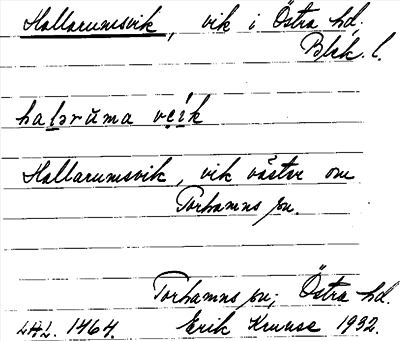 Hallarumsvik, vik i Östra hd.
Blek. l.
halərŭma vęi̯k
Hallarumsvik, vik väster om
Torhamns sn.
Torhamns sn; Östra hd.
LAL. 1464. Erik Kruuse 1932.